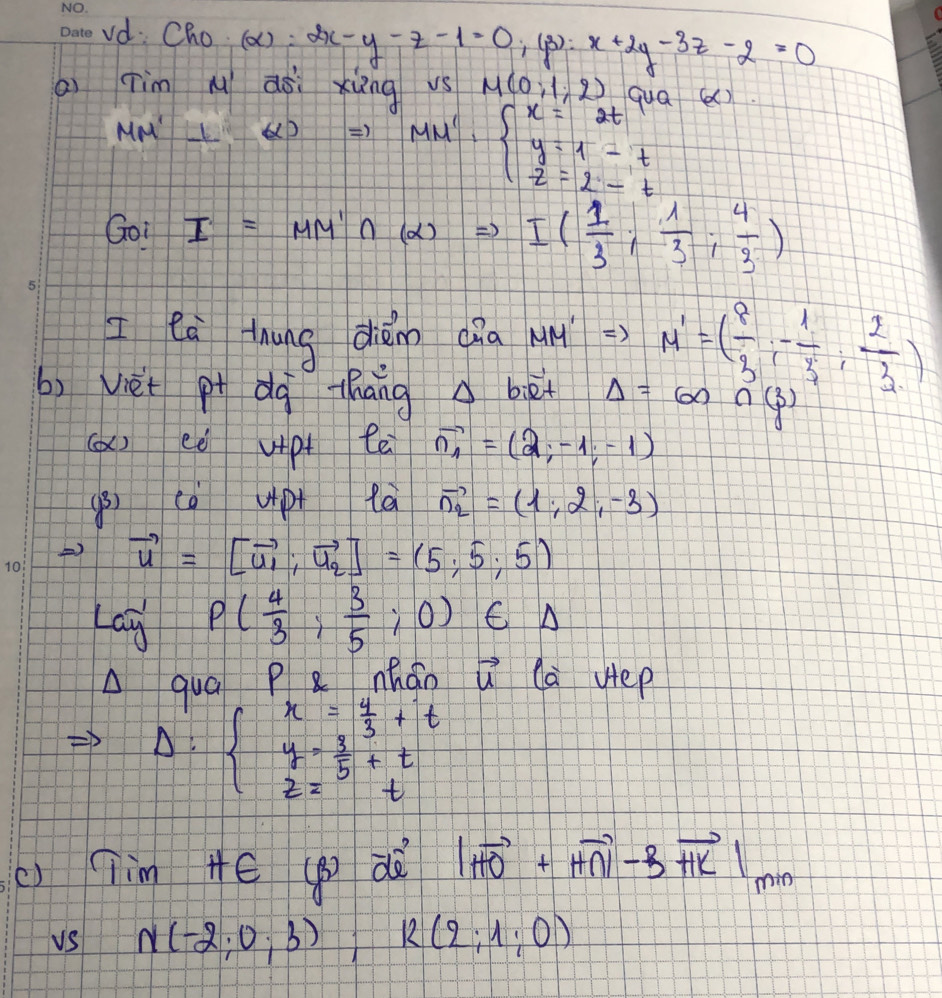 NO.
Date vd: Cho (α): 2x - y - z - 1 = 0; (β): x + 2y - 3z - 2 = 0
a) Tìm M' đối xứng vs M(0;1;2) qua (α).
MM' ⊥ (α) => MM': { x = 2t
y = 1 - t
z = 2 - t
Gọi I = MM' ∩ (α) => I(1/3; 1/3; 4/3)
5
I là trung điểm của MM' => M' = (8/3; -1/3; 2/3)
b) Viết pt đg thẳng Δ biết Δ = (α) ∩ (β)
(α) có vtpt là n₁ = (2;-1;-1)
(β) có vtpt là n₂ = (1;2;-3)
10 => u = [u₁; u₂] = (5;5;5)
Lấy P(4/3; 3/5; 0) ∈ Δ
Δ qua P & nhận u là vtcp
=> Δ: { x = 4/3 + t
y = 3/5 + t
z = t
c) Tìm H ∈ (β) để |HO + HN - 3HK| min
vs N(-2;0;3); K(2;1;0)